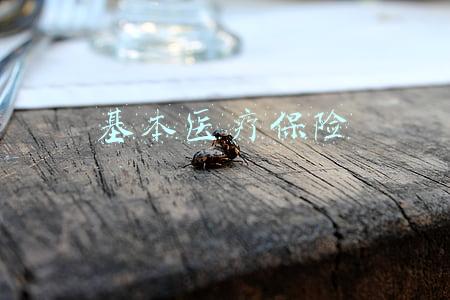 基本医疗保险